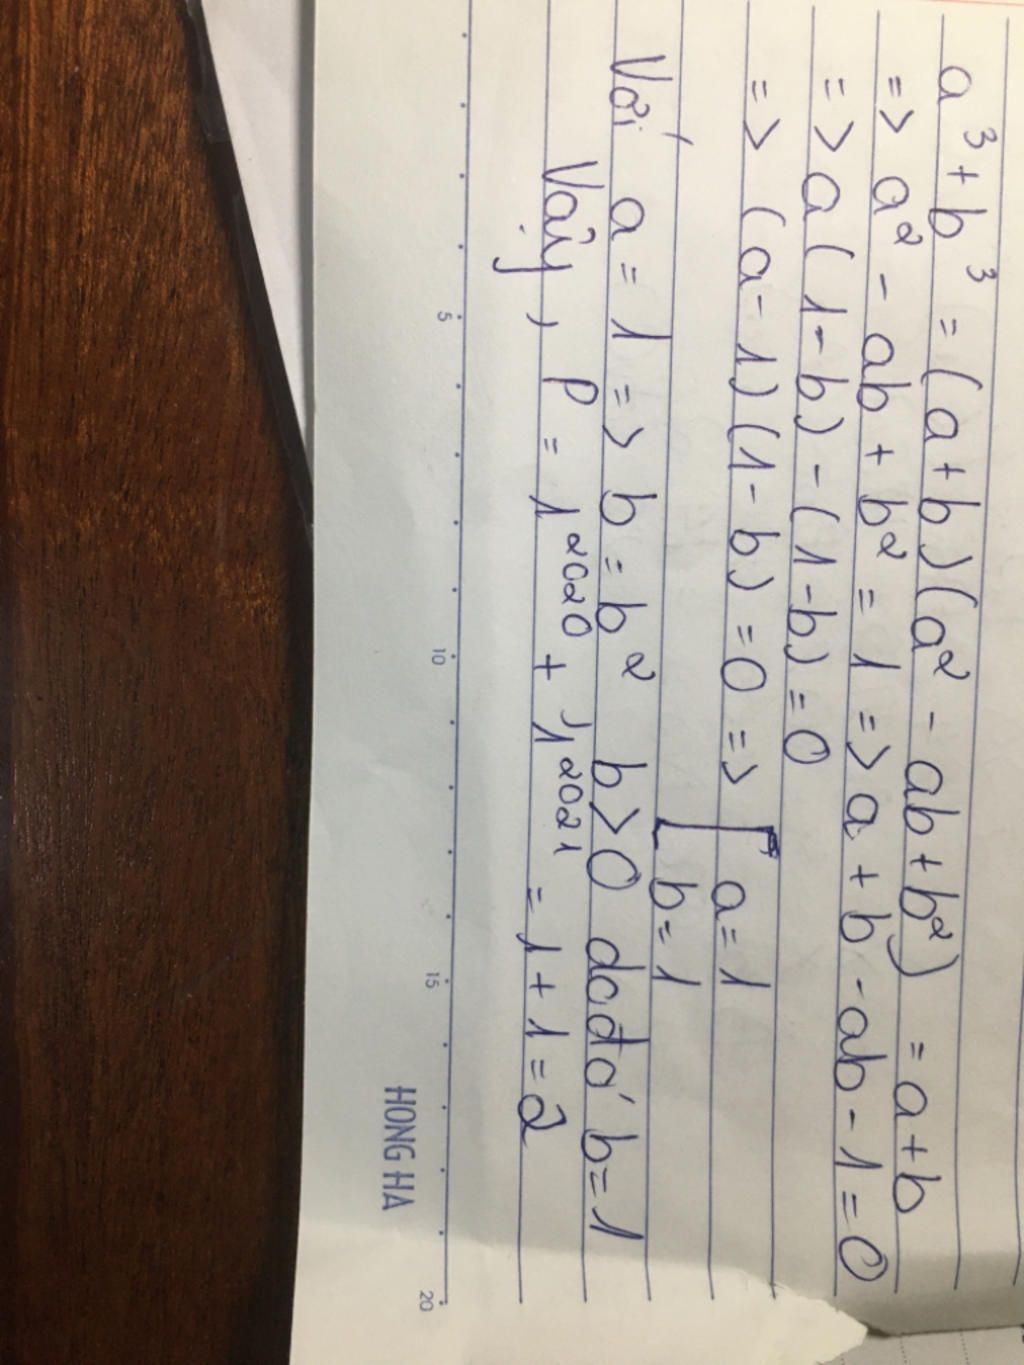 a³ + b³ = (a + b)(a² - ab + b²) = a + b
=> a² - ab + b² = 1 => a + b - ab - 1 = 0
=> a(1 - b) - (1 - b) = 0
=> (a - 1)(1 - b) = 0 => [ a = 1
b = 1
Với a = 1 => b = b² b > 0 do đó b = 1
Vậy, P = 1²⁰²⁰ + 1²⁰²¹ = 1 + 1 = 2
5 10 15 20
HONG HA